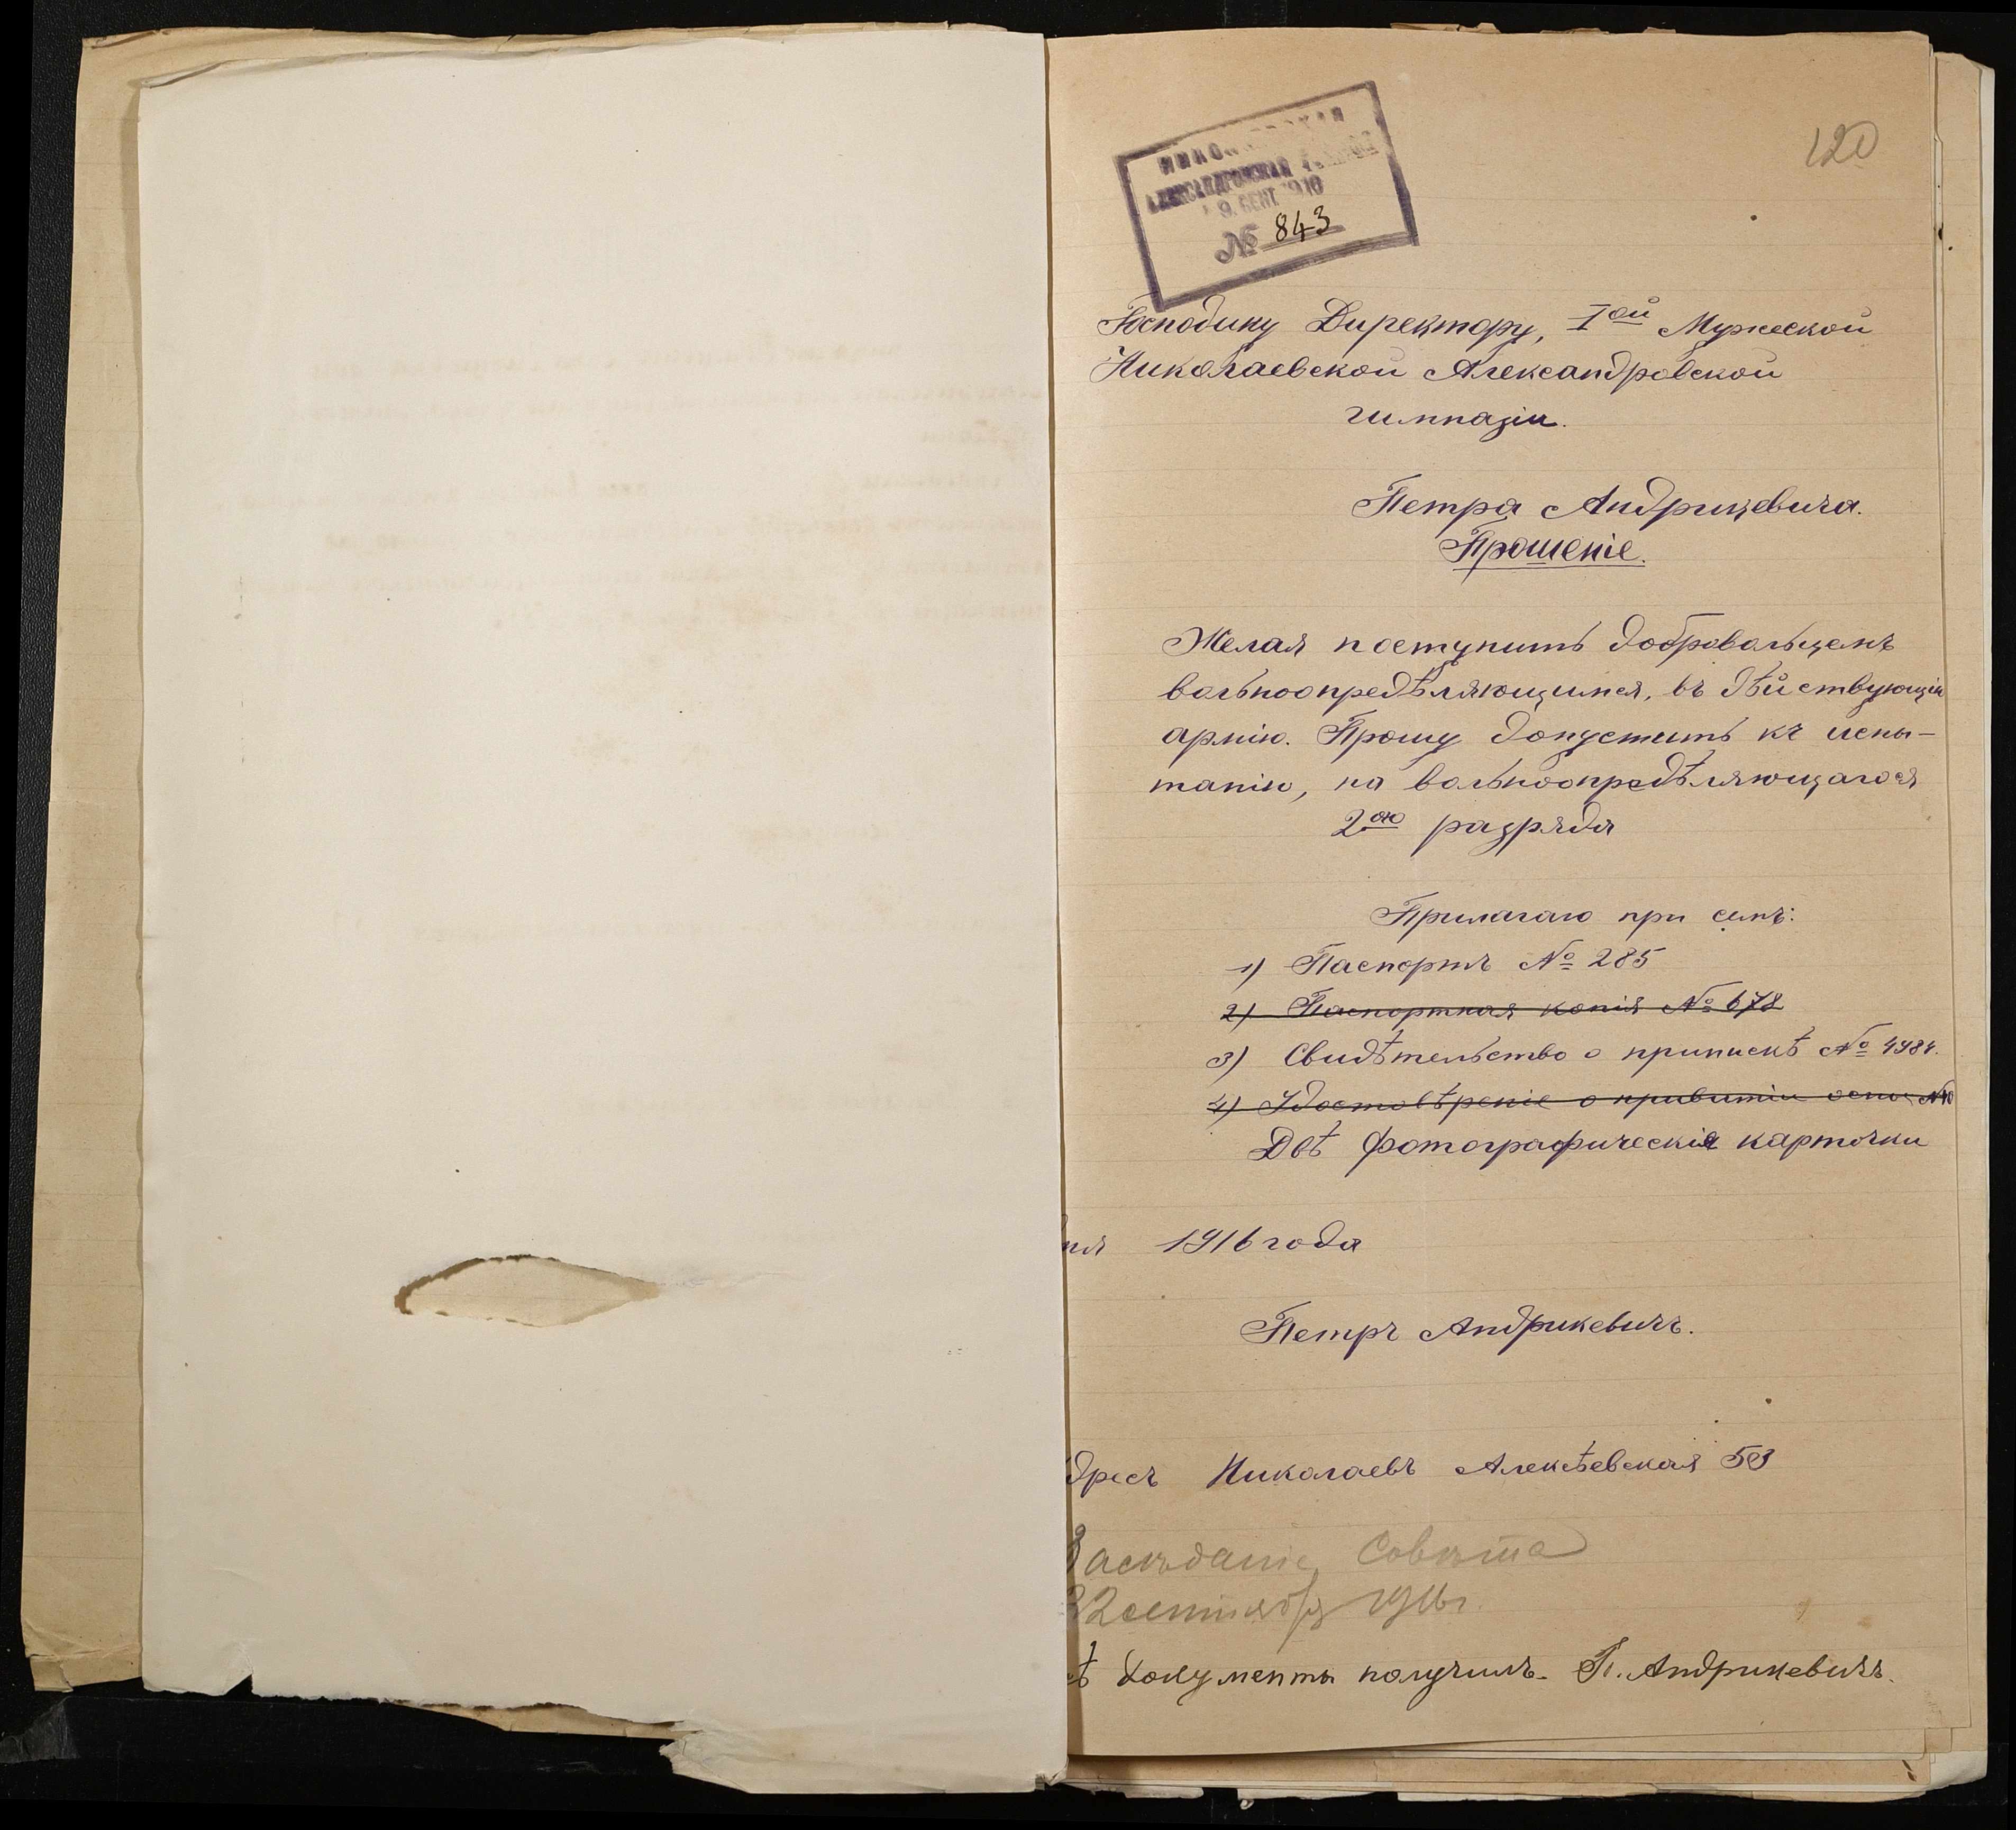 120
НИКОЛАЕВСКАЯ
АЛЕКСАНДРОВСКАЯ
9. СЕНТ 1916
№ 843
Господину Директору, Iой Мужеской
Николаевской Александровской
гимназіи.
Петра Андрикевича.
Прошеніе.
Желая поступить добровольцемъ
вольноопредѣляющимся, въ дѣйствующію
армію. Прошу допустить къ испы-
танію, на вольноопредѣляющагося
2ого разряда
Прилагаю при семъ:
1) Паспортъ № 285
2) Паспортная копія № 678
3) Свидѣтельство о припискѣ № 4984.
4) Удостовѣреніе о привитіи оспы №
Двѣ фотографическія карточки
ня 1916 года
Петръ Андрикевичъ.
дресъ Николаевъ Алексѣевская 53
Засѣданіе Совѣта
22 сентября 1916 г.
ѣ документы получилъ П. Андрикевичъ.